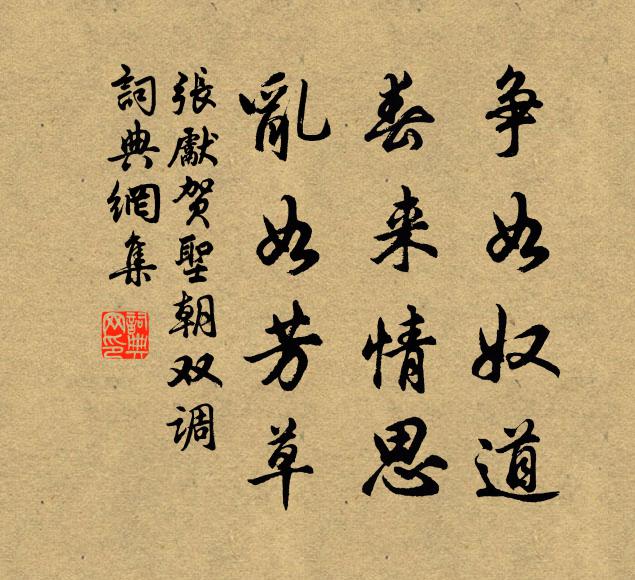 争如奴道
春来情思
亂如芳草
張獻贺聖朝双调
詞典網集
詞典
网印